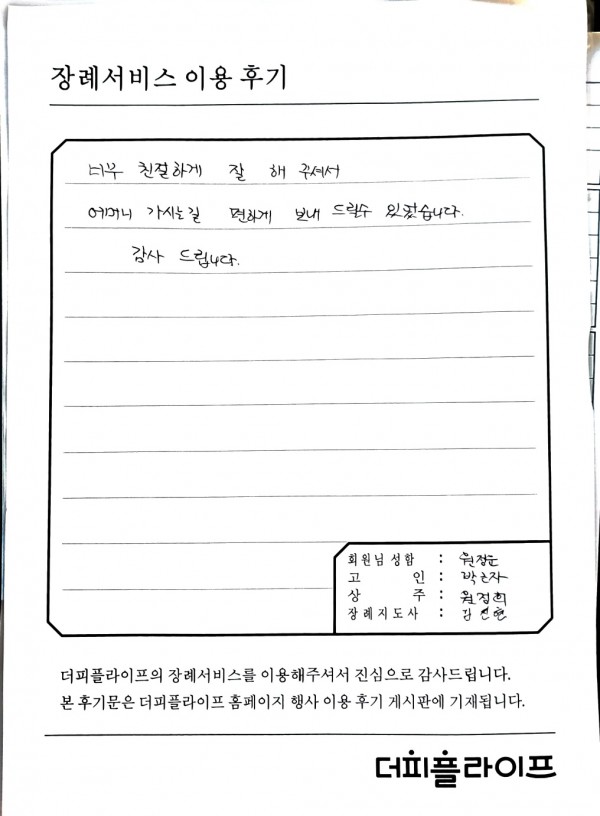 장례서비스 이용 후기
너무 친절하게 잘 해 주셔서
어머니 가시는길 편하게 보내 드릴수 있었습니다.
감사 드립니다.
회원님 성함 : 원정눈
고 인 : 박근자
상 주 : 원정희
장례지도사 : 김진현
더피플라이프의 장례서비스를 이용해주셔서 진심으로 감사드립니다.
본 후기문은 더피플라이프 홈페이지 행사 이용 후기 게시판에 기재됩니다.
더피플라이프